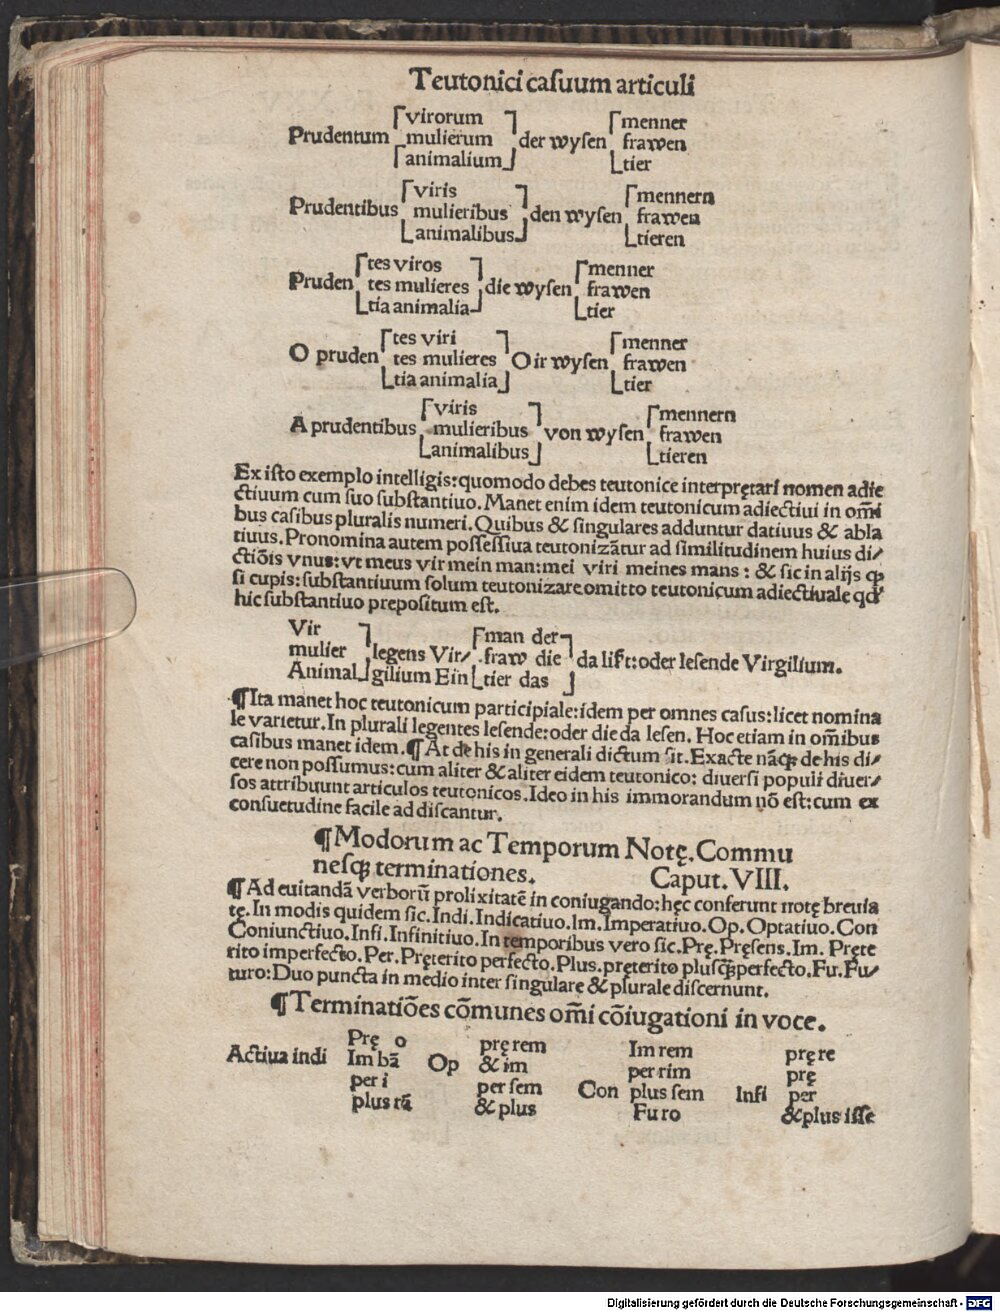 Teutonici casuum articuli
virorum menner
Prudentum mulierum der wysen frawen
animalium tier
viris mennern
Prudentibus mulieribus den wysen frawen
animalibus tieren
tes viros menner
Pruden tes mulieres die wysen frawen
tia animalia tier
tes viri menner
O pruden tes mulieres O ir wysen frawen
tia animalia tier
viris mennern
A prudentibus mulieribus von wysen frawen
animalibus tieren
Ex iſto exemplo intelligis:quomodo debes teutonice interpretari nomen adie
ctiuum cum ſuo ſubſtantiuo. Manet enim idem teutonicum adiectiui in om̄i
bus caſibus pluralis numeri. Quibus & ſingulares adduntur datiuus & abla
tiuus. Pronomina autem poſſeſſiua teutonizātur ad ſimilitudinem huius di⸗
ctiōis vnus: vt meus vir mein man: mei viri meines mans : & ſic in alijs ꝙ
ſi cupis: ſubſtantiuum ſolum teutonizare omitto teutonicum adiectiuale qd'
hic ſubſtantiuo prepoſitum eſt.
Vir man der
mulier legens Vir⸗ fraw die da liſt: oder leſende Virgilium.
Animal gilium Ein tier das
¶ Ita manet hoc teutonicum participiale: idem per omnes caſus: licet nomina
le varietur. In plurali legentes leſende: oder die da leſen. Hoc etiam in om̄ibus
caſibus manet idem. ¶ At de his in generali dictum ſit. Exacte nāꝗ de his di⸗
cere non poſſumus: cum aliter & aliter eidem teutonico: diuerſi populi diuer⸗
ſos attribuunt articulos teutonicos. Ideo in his immorandum nō eſt: cum ex
conſuetudine facile ad diſcantur.
¶ Modorum ac Temporum Notę. Commu
neſꝗ terminationes. Caput. VIII.
¶ Ad euitandā verborū prolixitatē in coniugando: hęc conferunt notę breuia
tę. In modis quidem ſic. Indi. Indicatiuo. Im. Imperatiuo. Op. Optatiuo. Con
Coniunctiuo. Infi. Infinitiuo. In temporibus vero ſic. Prę. Pręſens. Im. Pręte
rito imperfecto. Per. Pręterito perfecto. Plus. preterito pluſꝗperfecto. Fu. Fu⸗
turo: Duo puncta in medio inter ſingularę & plurale diſcernunt.
¶ Terminatiōes cōmunes om̄i cōiugationi in voce.
Prę o prę rem Im rem prę re
Actiua indi Im bā Op & im per rim prę
per i per ſem Con plus ſem Infi per
plus rā & plus Fu ro & plus iſſe
Digitalisierung gefördert durch die Deutsche Forschungsgemeinschaft - DFG